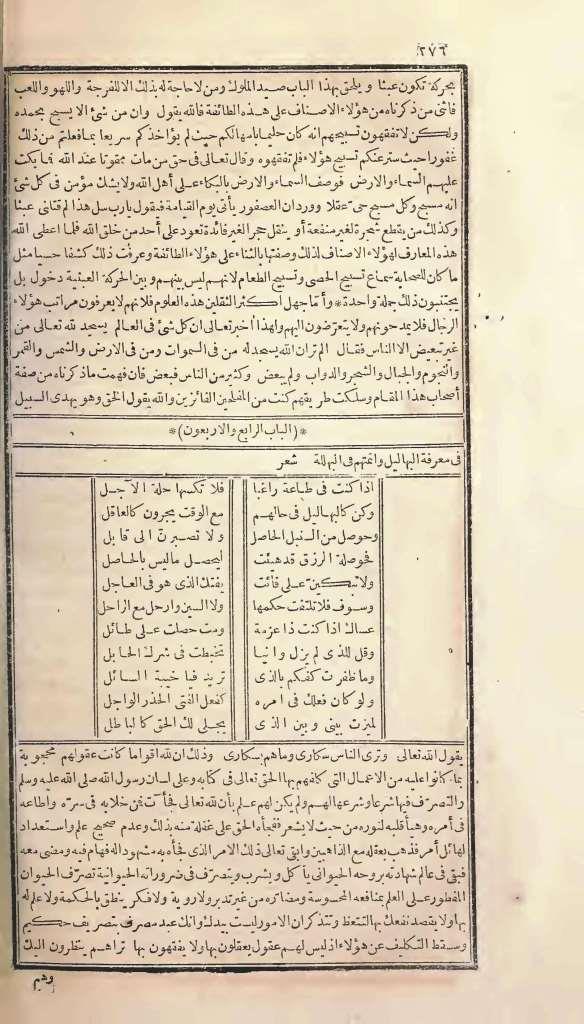 ٢٧٦
بحركة تكون عبثا ويلحق بهذا الباب صيد الملوك ومن لا حاجة له بذلك الا للفرجة واللهو واللعب
فاثنى من ذكرناه من هؤلاء الاصناف على هذه الطائفة فالله يقول وان من شئ الا يسبح بحمده
ولكن لا تفقهون تسبيحهم انه كان حليما بامهالكم حيث لم يؤاخذكم سريعا بما فعلتم من ذلك
غفورا حيث ستر عنكم تسبيح هؤلاء فلم تفقهوه وقال تعالى فى حق من مات ممقوتا عند الله فما بكت
عليهم السماء والارض فوصف السماء والارض بالبكاء على أهل الله ولا يشك مؤمن فى كل شئ
انه مسبح وكل مسبح حى عقلا وورد ان العصفور يأتى يوم القيامة فيقول يارب سل هذا لم قتلنى عبثا
وكذلك من يقطع شجرة لغير منفعة أو ينقل حجر الغير فائدة تعود على أحد من خلق الله فلما اعطى الله
هذه المعارف لهؤلاء الاصناف لذلك وصفتها بالثناء على هؤلاء الطائفة وعرفت ذلك كشفا حسيا مثل
ما كان للصحابة سماع تسبيح الحصى وتسبيح الطعام لانهم ليس بينهم وبين الحركة العبثية دخول بل
يجتنبون ذلك جلة واحدة * وأما جهل اكثر الثقلين هذه العلوم فلانهم لا يعرفون مراتب هؤلاء
الرجال فلا يمدحونهم ولا يتعرضون اليهم ولهذا أخبر تعالى ان كل شئ فى العالم يسجد لله تعالى من
غير تبعيض الا الناس فقال ألم تر ان الله يسجد له من فى السموات ومن فى الارض والشمس والقمر
والنجوم والجبال والشجر والدواب ولم يبعض وكثير من الناس فبعض فان فهمت ما ذكرناه من صفة
أصحاب هذا المقام وسلكت طريقهم كنت من المفلحين الفائزين والله يقول الحق وهو يهدى السبيل
*(الباب الرابع والاربعون)*
فى معرفة البهاليل وائمتهم فى البهللة شعر
اذا كنت فى طاعة راغبا فلا تكسها حلة الآجل
وكن كالبهاليل فى حالهم مع الوقت يجرون كالعاقل
وحوصل من السنبل الحاصل ولا تصبرن الى قابل
فحوصلة الرزق قد هيئت ليحصل ما ليس بالحاصل
ولا تبكين على فائت يفتك الذى هو فى العاجل
وسوف فلا تلتفت حكمها ولا السين وارحل مع الراحل
عساك اذا كنت ذا عزمة ومت حصلت على طائل
وقل للذى لم يزل وانيا تخبطت فى شرك الحابل
وما ظفرت كفكم بالذى تريد فيا خيبة السائل
ولو كان فعلك فى امره كفعل الفتى الحذر الواجل
لميزت بينى وبين الذى يجلى لك الحق كالباطل
يقول الله تعالى وترى الناس سكارى وما هم بسكارى وذلك ان لله اقواما كانت عقولهم محجوبة
بما كانوا عليه من الاعمال التى كلفهم بها الحق تعالى فى كتابه وعلى لسان رسول الله صلى الله عليه وسلم
والتصرف فيها شرعا وشرعها لهم ولم يكن لهم علم بأن لله تعالى فجآت لمن خلا به فى سره واطاعه
فى أمره وهيأ قلبه لنوره من حيث لا يشعر ففجأه الحق على غفلة منه بذلك وعدم صحيح علم واستعداد
لهائل أمر فذهب بعقله مع الذاهبين وابقى تعالى ذلك الامر الذى فجأه به مشهودا له فهام فيه ومضى معه
فبقى فى عالم شهادته بروحه الحيوانى يأكل ويشرب ويتصرف فى ضروراته الحيوانية تصرف الحيوان
المفطور على العلم بمنافعه المحسوسة ومضاره من غير تدبر ولا روية ولا فكر ينطق بالحكمة ولا علم له
بها ولا يقصد نفعك بها لتتعظ وتتذكر ان الامور ليست بيدك وانك عبد مصرف بتصريف حكيم
وسقط التكليف عن هؤلاء اذ ليس لهم عقول يعقلون بها ولا يفقهون بها تراهم ينظرون اليك
وهم